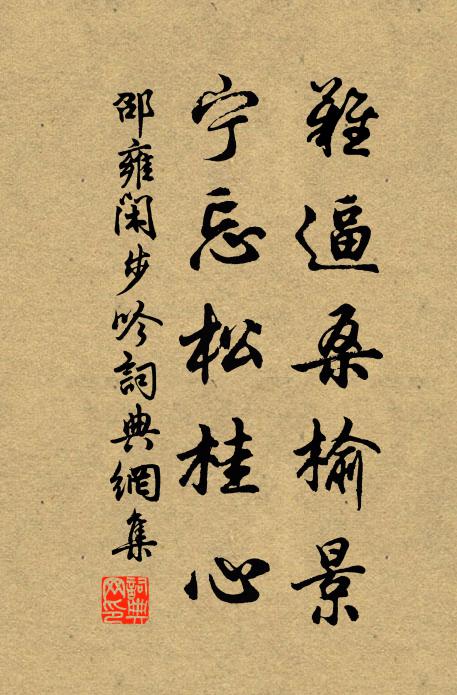 難逼桑榆景
宁忘松桂心
邵雍閑步吟詞典網集
詞典網印